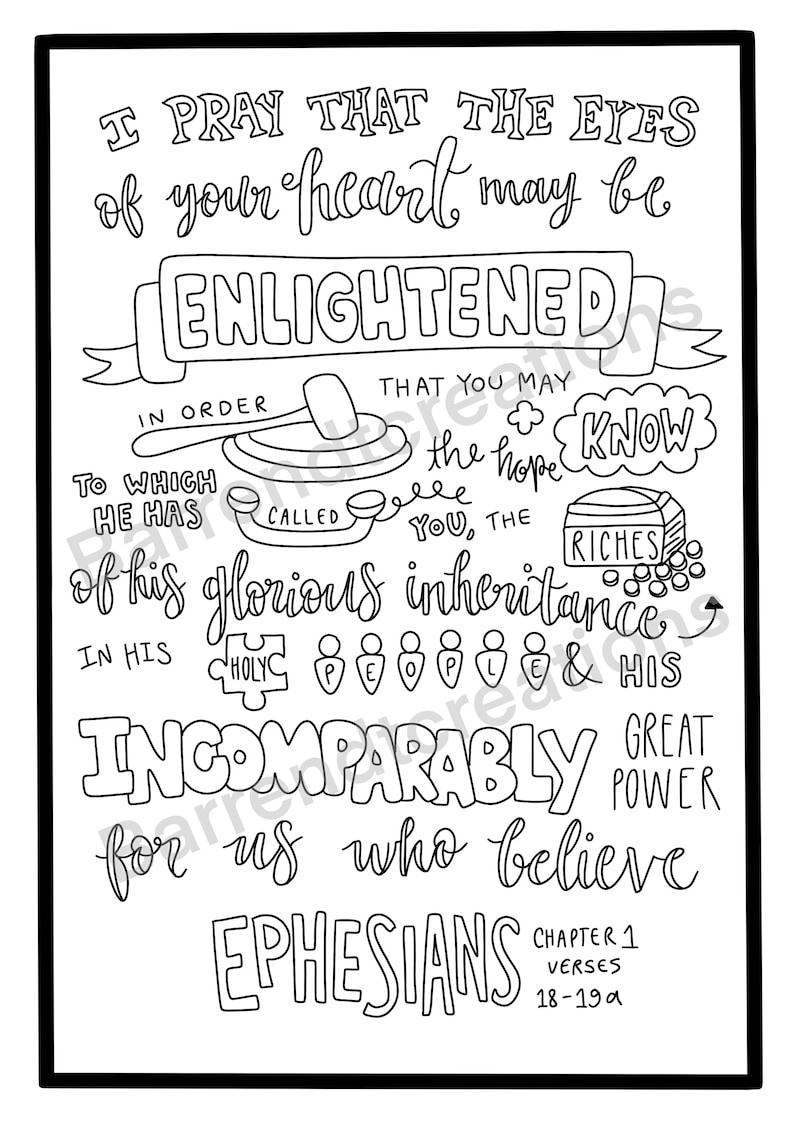 I PRAY THAT THE EYES
of your heart may be
ENLIGHTENED
IN ORDER THAT YOU MAY
KNOW
the hope
TO WHICH
HE HAS
CALLED
YOU, THE
RICHES
of his glorious inheritance
IN HIS HOLY PEOPLE & HIS
INCOMPARABLY
GREAT
POWER
for us who believe
EPHESIANS
CHAPTER 1
VERSES
18-19a
Barrendtcreations
Barrendtcreations